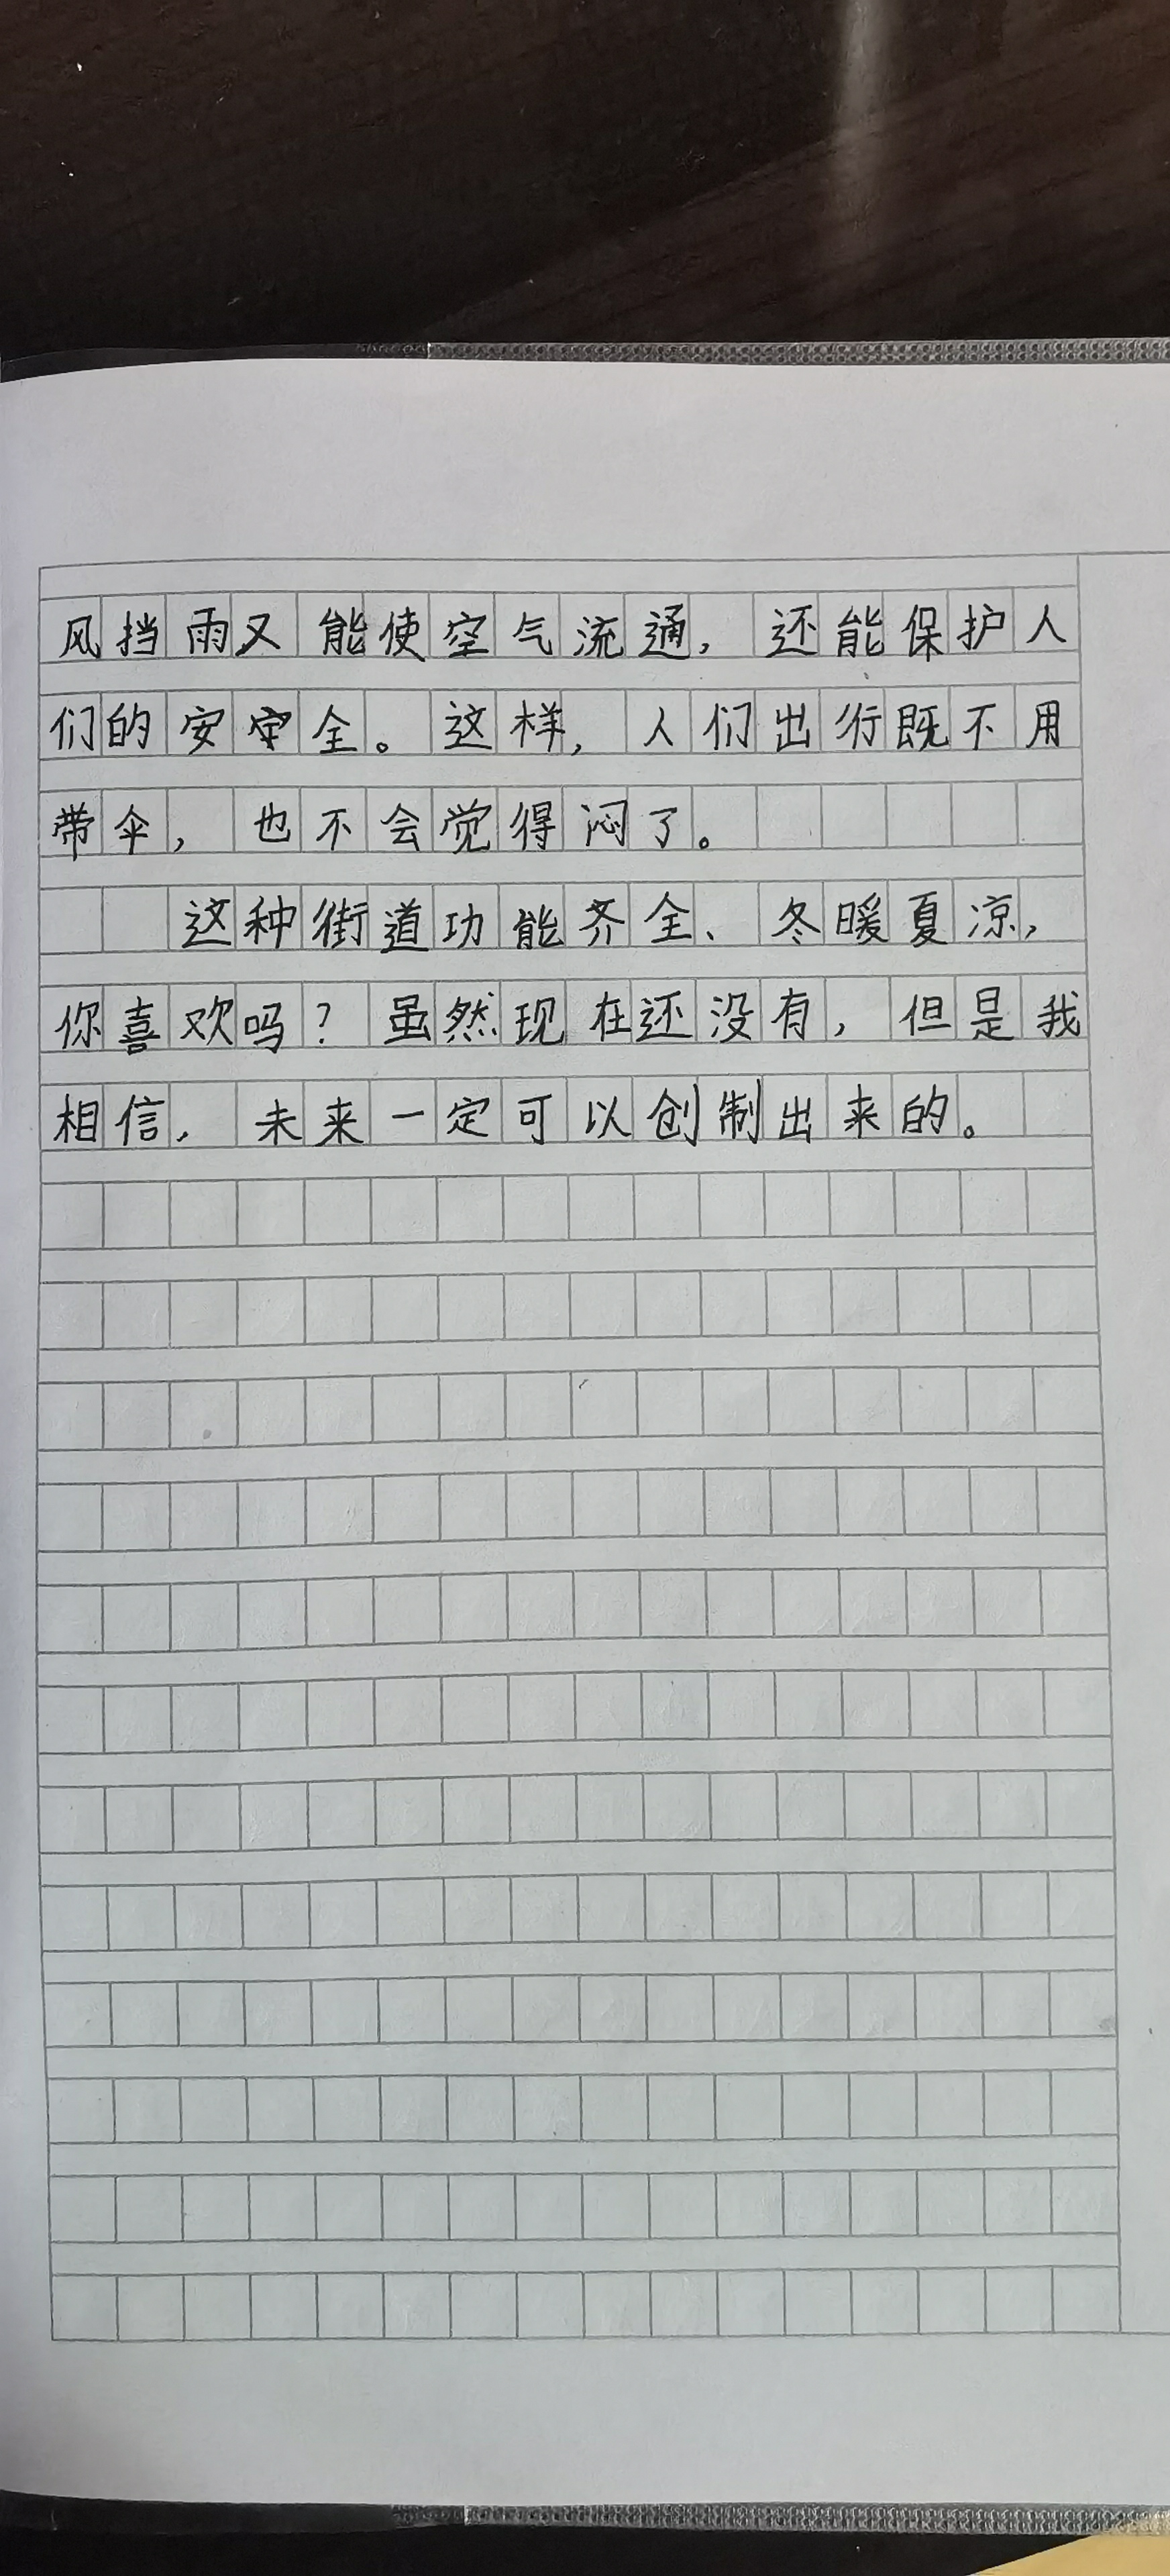 风挡雨又能使空气流通，还能保护人
们的安全。这样，人们出行既不用
带伞，也不会觉得闷了。
这种街道功能齐全、冬暖夏凉，
你喜欢吗？虽然现在还没有，但是我
相信，未来一定可以创制出来的。